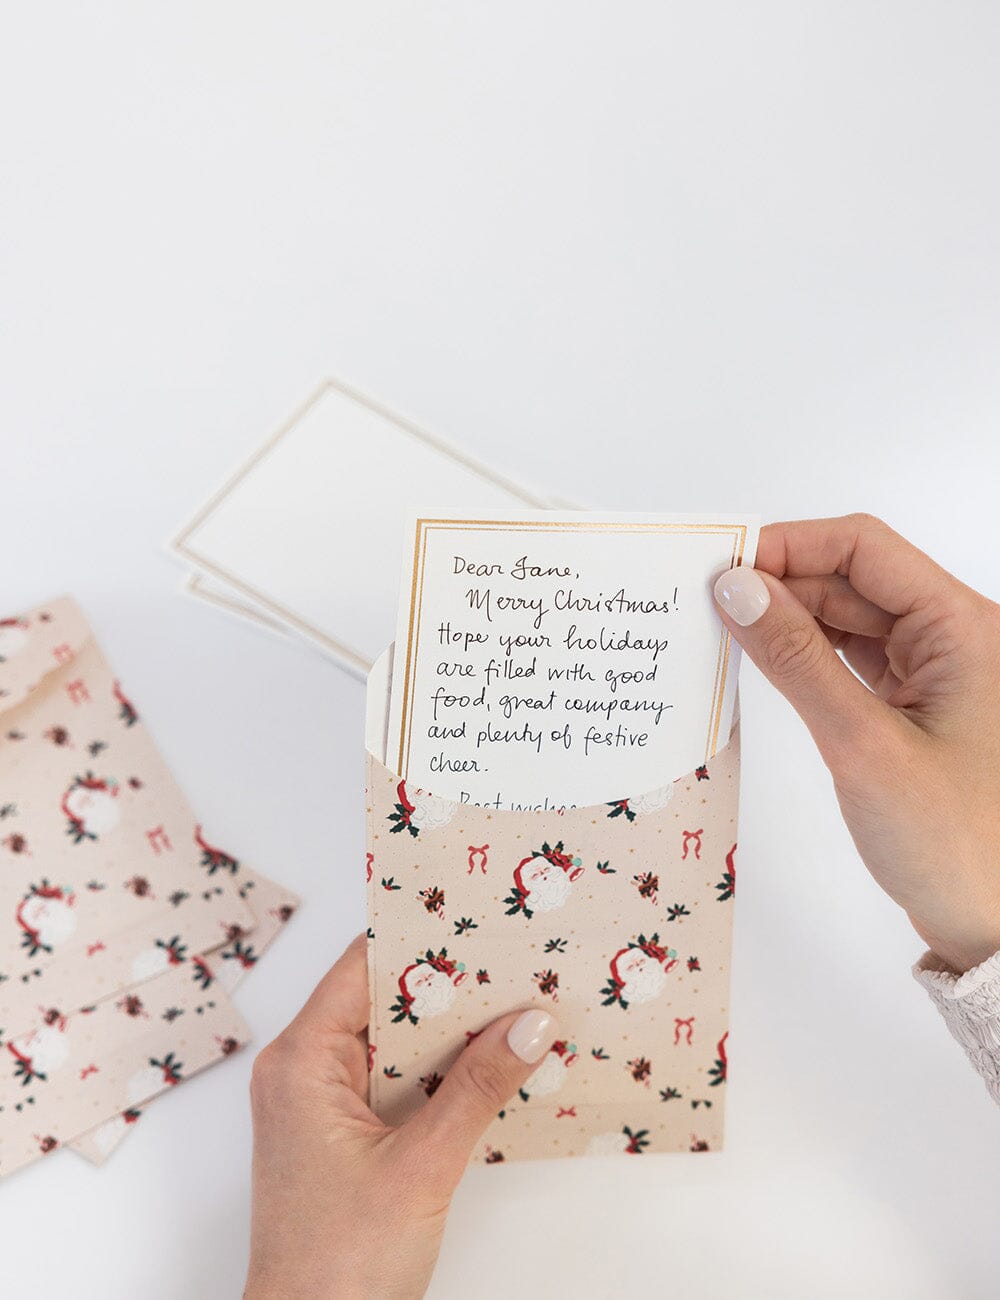 Dear Jane,
Merry Christmas!
Hope your holidays
are filled with good
food, great company
and plenty of festive
cheer.
Best wishes